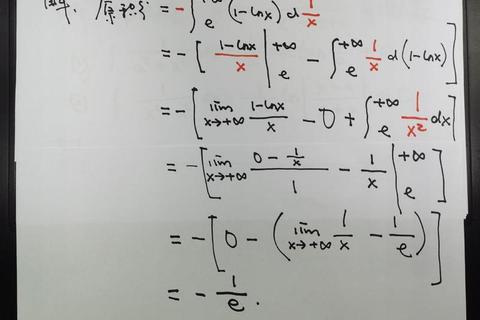 解: 原积分 = -∫_e^{+∞} (1-lnx) d 1/x
= -[ (1-lnx)/x |_e^{+∞} - ∫_e^{+∞} 1/x d(1-lnx) ]
= -[ lim_{x→+∞} (1-lnx)/x - 0 + ∫_e^{+∞} 1/x² dx ]
= -[ lim_{x→+∞} (0 - 1/x)/1 - 1/x |_e^{+∞} ]
= -[ 0 - ( lim_{x→+∞} 1/x - 1/e ) ]
= - 1/e .